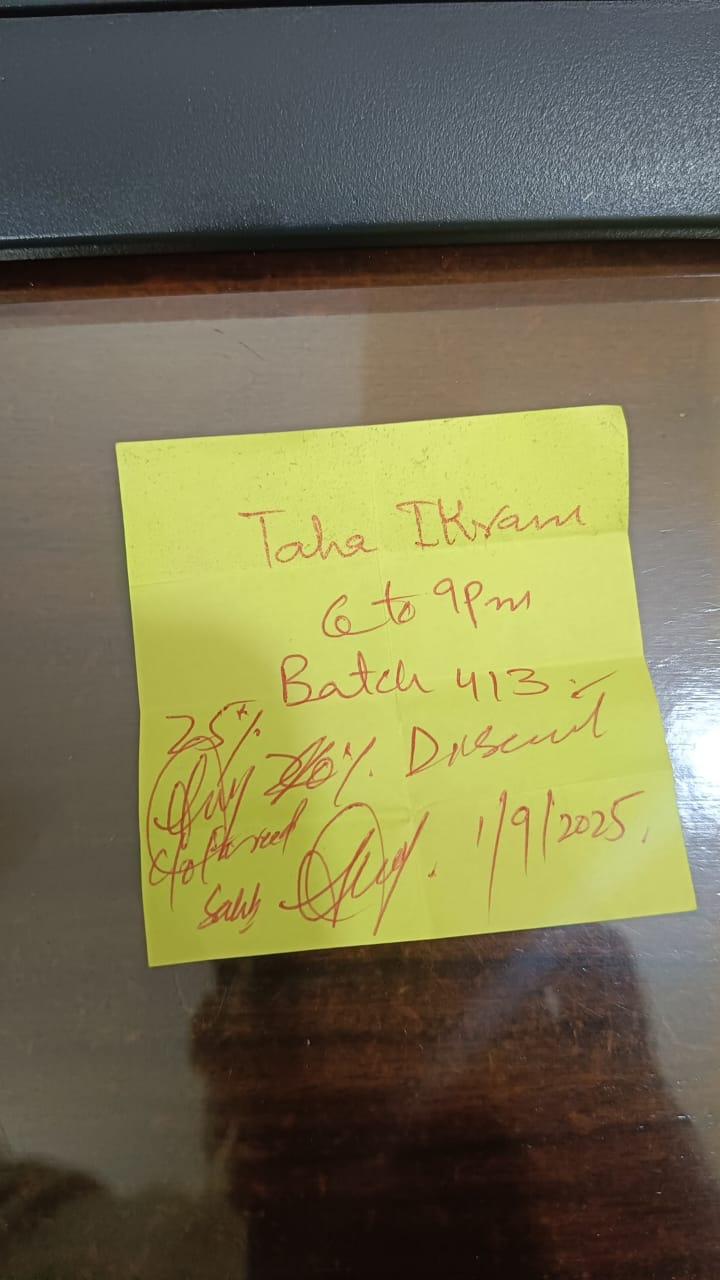 Taha IKram
6 to 9pm
Batch 413
25%
20% Discount
Sahb
1/9/2025